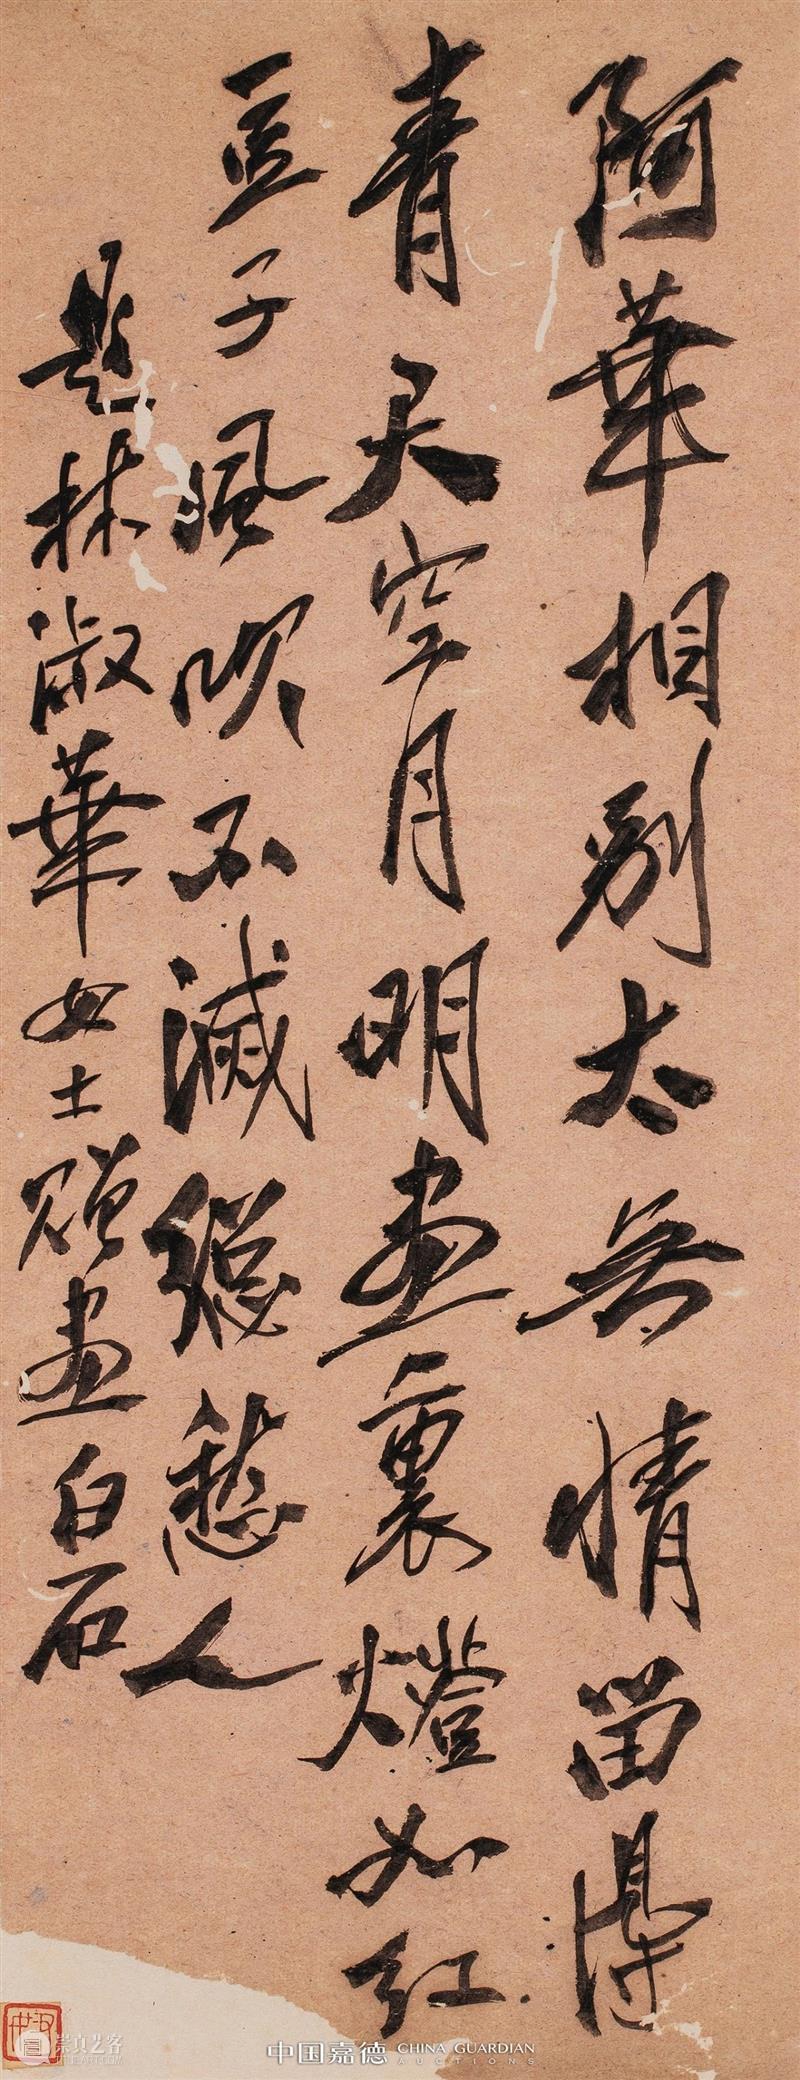 阿華相別太无情留得
青天空月明畫裏燈如紅
豆子風吹不滅總愁人
題林淑華女士贈畫白石
崇真艺客
中国嘉德 CHINA GUARDIAN
AUCTIONS